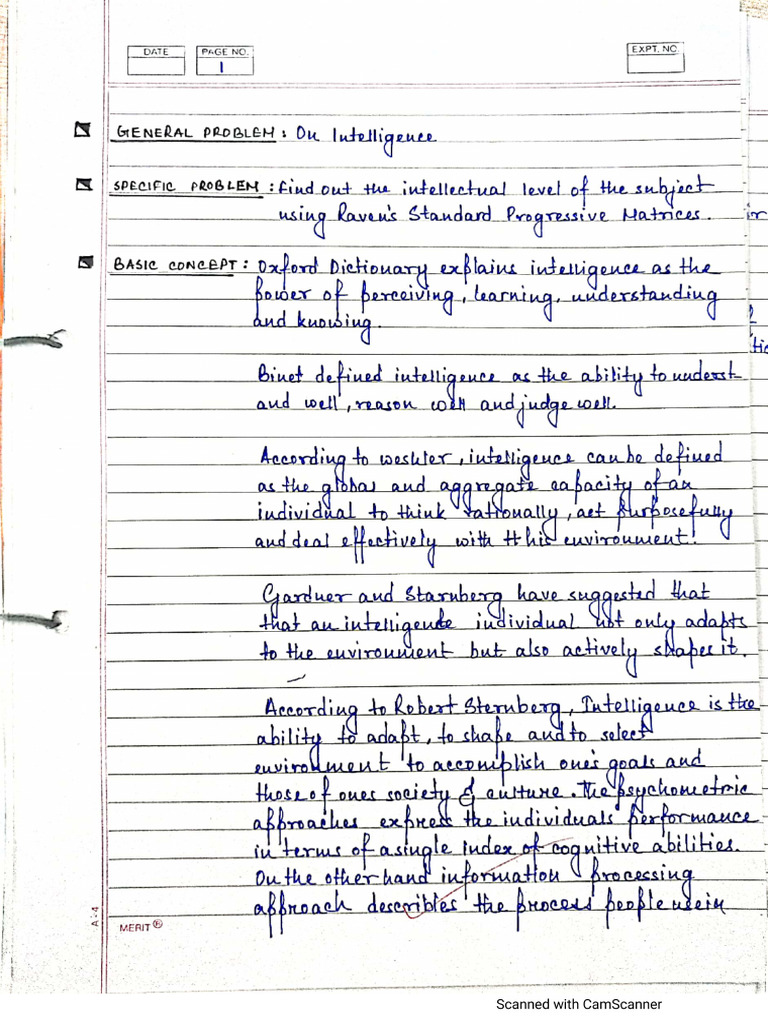 DATE
PAGE NO.
1
EXPT. NO.
GENERAL PROBLEM : On Intelligence
SPECIFIC PROBLEM : Find out the intellectual level of the subject
using Raven's Standard Progressive Matrices.
BASIC CONCEPT : Oxford Dictionary explains intelligence as the
power of perceiving, learning, understanding
and knowing.
Binet defined intelligence as the ability to underst
and well, reason well and judge well.
According to weshler, intelligence can be defined
as the global and aggregate capacity of an
individual to think rationally, act purposefully
and deal effectively with this environment.
Gardner and Starnberg have suggested that
that an intelligent individual not only adapts
to the environment but also actively shapes it.
According to Robert Sternberg, Intelligence is the
ability to adapt, to shape and to select
environment to accomplish one's goals and
those of ones society & culture. The psychometric
approaches express the individuals performance
in terms of a single index of cognitive abilities.
On the other hand information processing
approach describles the process people use in
A-4
MERIT®
Scanned with CamScanner